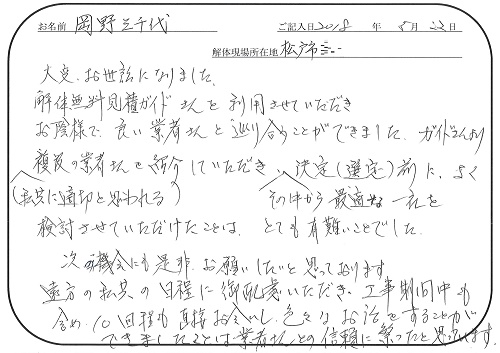 お名前 岡野三千代 ご記入日 2018 年 5 月 22 日
解体現場所在地 松戸市
大変、お世話になりました。
解体無料見積ガイドさんを利用させていただき
お陰様で、良い業者さんと巡り合うことができました。ガイドさんより
複数の業者さんを紹介していただき、決定(選定)前に、よく
(私共に適切と思われる) その中から最適な一社を
検討させていただけたことは、とても有難いことでした。
次の機会にも是非、お願いしたいと思っております。
遠方の私共の日程に御配慮いただき、工事期間中も
含め、10回程も直接お会いし、色々なお話をすることが
できましたことは業者さんとの信頼に繋ったと思っています。